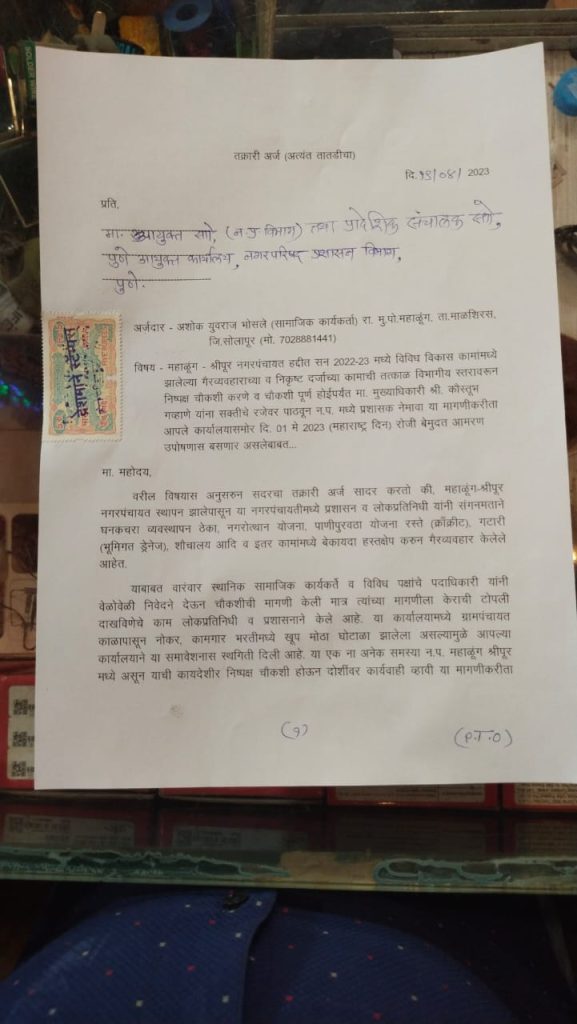 तक्रारी अर्ज (अत्यंत तातडीचा)
दि.19/04/ 2023
प्रति,
मा. उपायुक्त सो, (न.प्र विभाग) तथा प्रादेशिक संचालक सो,
पुणे आयुक्त कार्यालय, नगरपरिषद प्रशासन विभाग,
पुणे.
अर्जदार - अशोक युवराज भोसले (सामाजिक कार्यकर्ता) रा. मु.पो.महाळूंग, ता.माळशिरस,
जि.सोलापूर (मो. 7028881441)
विषय - महाळूग - श्रीपूर नगरपंचायत हद्दीत सन 2022-23 मध्ये विविध विकास कामांमध्ये
झालेल्या गैरव्यवहाराच्या व निकृष्ट दर्जाच्या कामाची तत्काळ विभागीय स्तरावरून
निष्पक्ष चौकशी करणे व चौकशी पूर्ण होईपर्यंत मा. मुख्याधिकारी श्री. कोस्तूभ
गव्हाणे यांना सक्तीचे रजेवर पाठवून न.प. मध्ये प्रशासक नेमावा या मागणीकरीता
आपले कार्यालयासमोर दि. 01 मे 2023 (महाराष्ट्र दिन) रोजी बेमुदत आमरण
उपोषणास बसणार असलेबाबत...
मा. महोदय,
वरील विषयास अनुसरुन सदरचा तक्रारी अर्ज सादर करतो की, महाळूंग-श्रीपूर
नगरपंचायत स्थापन झालेपासून या नगरपंचायतीमध्ये प्रशासन व लोकप्रतिनिधी यांनी संगनमताने
घनकचरा व्यवस्थापन ठेका, नगरोत्थान योजना, पाणीपुरवठा योजना रस्ते (क्राँक्रीट), गटारी
(भूमिगत ड्रेनेज), शौचालय आदि व इतर कामांमध्ये बेकायदा हस्तक्षेप करुन गैरव्यवहार केलेले
आहेत.
याबाबत वारंवार स्थानिक सामाजिक कार्यकर्ते व विविध पक्षांचे पदाधिकारी यांनी
वेळोवेळी निवेदने देऊन चौकशीची मागणी केली मात्र त्यांच्या मागणीला केराची टोपली
दाखविणेचे काम लोकप्रतिनिधी व प्रशासनाने केले आहे. या कार्यालयामध्ये ग्रामपंचायत
काळापासून नोकर, कामगार भरतीमध्ये खूप मोठा घोटाळा झालेला असल्यामुळे आपल्या
कार्यालयाने या समावेशनास स्थगिती दिली आहे. या एक ना अनेक समस्या न.प. महाळूंग श्रीपूर
मध्ये असून याची कायदेशीर निष्पक्ष चौकशी होऊन दोशींवर कार्यवाही व्हावी या मागणीकरीता
(१)
(P.T.O)